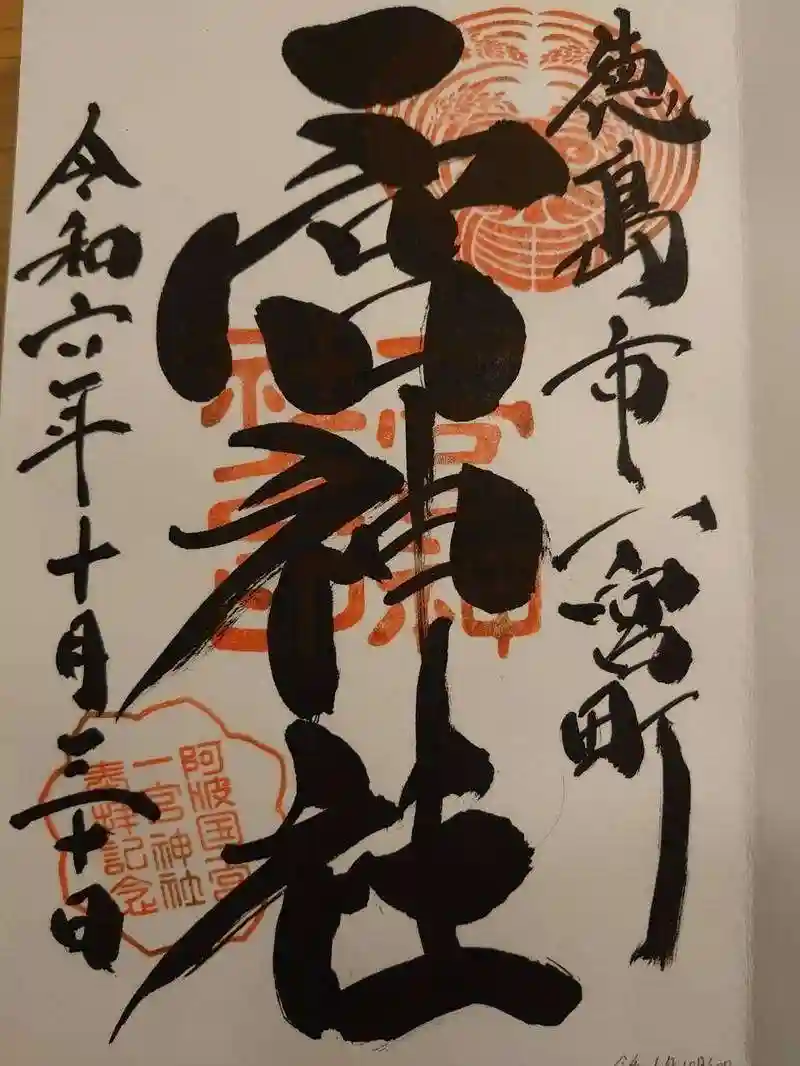 徳島市一宮町
一宮神社
令和六年十月三十日
阿波国一宮
一宮神社
奉拝記念